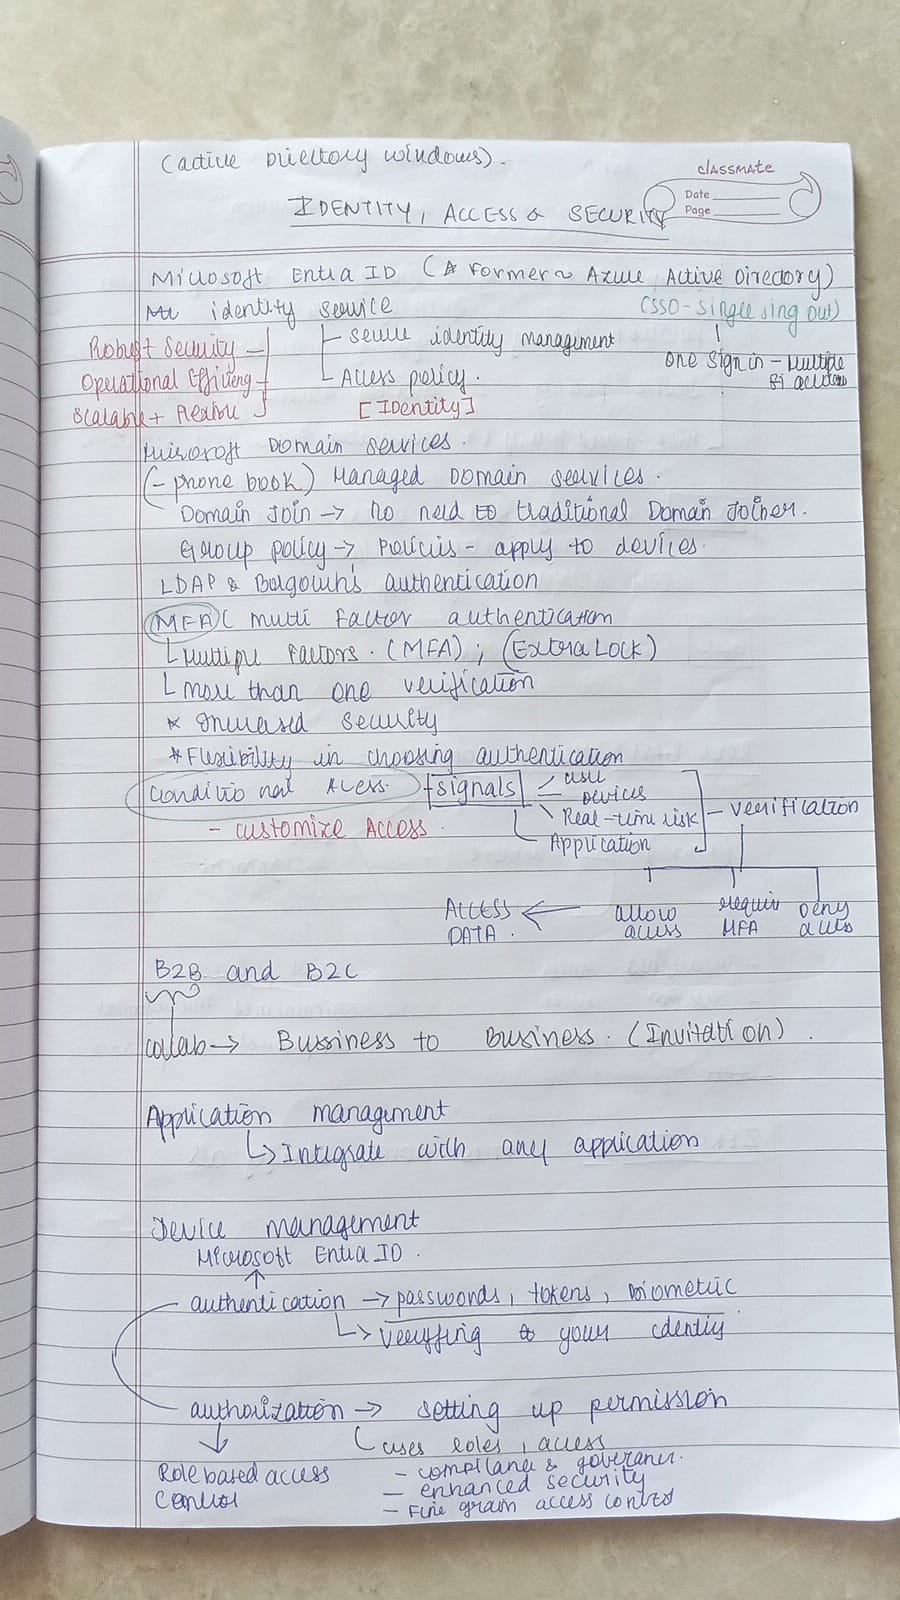 (active Directory windows).
classmate
Date
Page
IDENTITY, ACCESS & SECURITY
Microsoft Entra ID (A Former ~ Azure Active Directory)
identity service (SSO - single sing out)
Robust Security - secure identity management
one sign in - Multiple
Operational Efficiency - Access policy.
Scalable + Flexible [IDentity]
Microsoft Domain services.
(- phone book) Managed Domain services.
Domain Join → No need to traditional Domain Joiner.
Group policy → Policies - apply to devices.
LDAP & authentication
MFA ( Multi Factor authentication
Multiple Factors. (MFA) ; (Extra Lock)
more than one verification
* Increased security
* Flexibility in choosing authentication
Conditional Acess. signals user
Devices
- verification
Real-time risk
- customize Access.
Application
ACCESS DATA. ← allow access require MFA Deny access
B2B and B2C
collab → Bussiness to Business. (Invitation)
Application management
↳ Integrate with any application
Device management
Microsoft Entra ID.
↑
authentication → passwords, tokens, Biometric
↳ veryfing to your identiy
authorization → setting up permission
↓ uses roles, access
Role based access - compliance & governance.
- enhanced security
Control - Fine grain access control